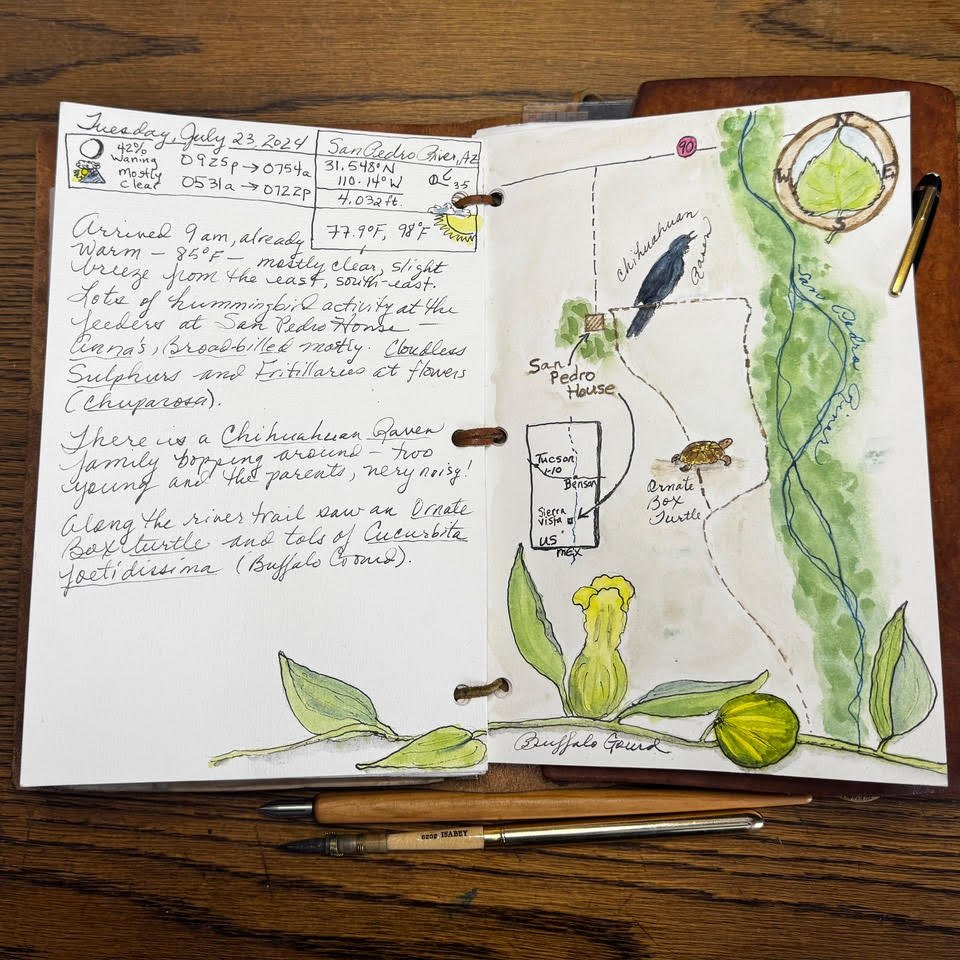 Tuesday, July 23, 2024
42%
Waning
mostly
clear
0925p → 0754a
0531a → 0722p
San Pedro River, AZ
31.548°N
110.14°W
3-5
4,032 ft.
77.9°F, 98°F
Arrived 9 am, already
warm – 85°F – mostly clear, slight
breeze from the east, south-east.
Lots of hummingbird activity at the
feeders at San Pedro House –
Anna's, Broadbilled mostly. Cloudless
Sulphurs and Fritillaries at flowers
(chuparosa).
There is a Chihuahuan Raven
family bopping around – two
young and the parents, very noisy!
Along the river trail saw an Ornate
Box turtle and lots of Cucurbita
foetidissima (Buffalo Gourd).
90
N
E
S
W
Chihuahuan
Raven
San Pedro River
San
Pedro
House
Tucson
I-10
Benson
Sierra
Vista
US
MEX
Ornate
Box
Turtle
Buffalo Gourd
6202 ISABEY